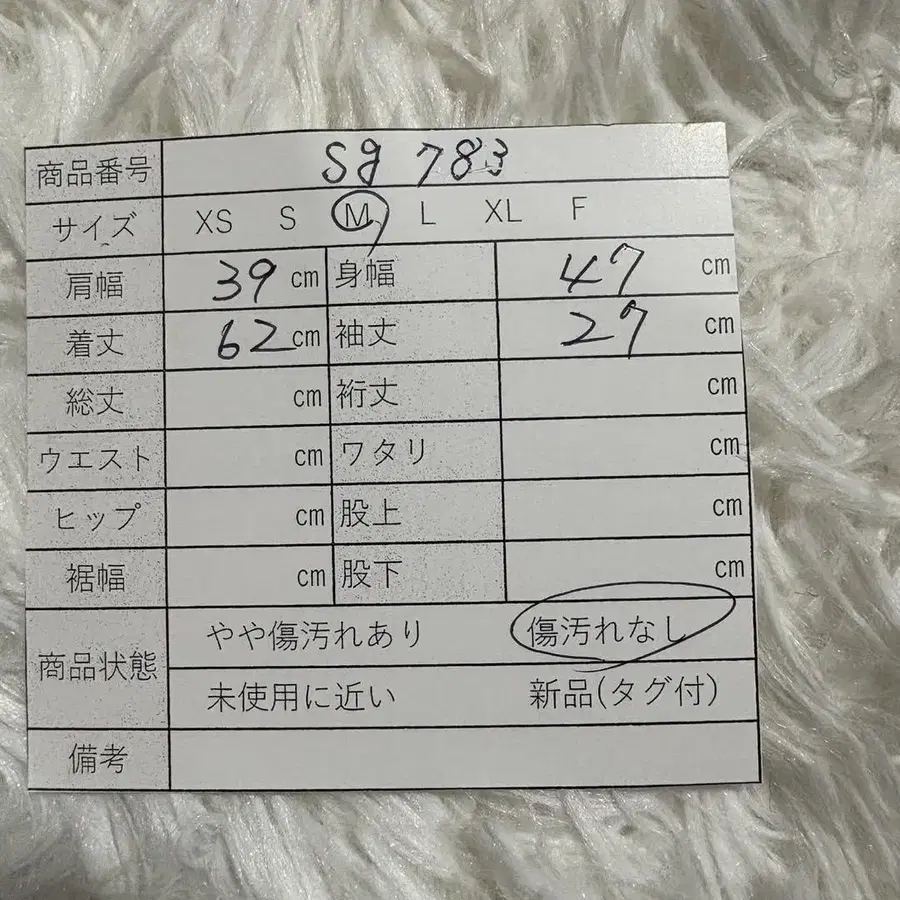 商品番号 sg 783
サイズ XS S M L XL F
肩幅 39 cm 身幅 47 cm
着丈 62 cm 袖丈 27 cm
総丈 cm 裄丈 cm
ウエスト cm ワタリ cm
ヒップ cm 股上 cm
裾幅 cm 股下 cm
商品状態 やや傷汚れあり 傷汚れなし
未使用に近い 新品(タグ付)
備考